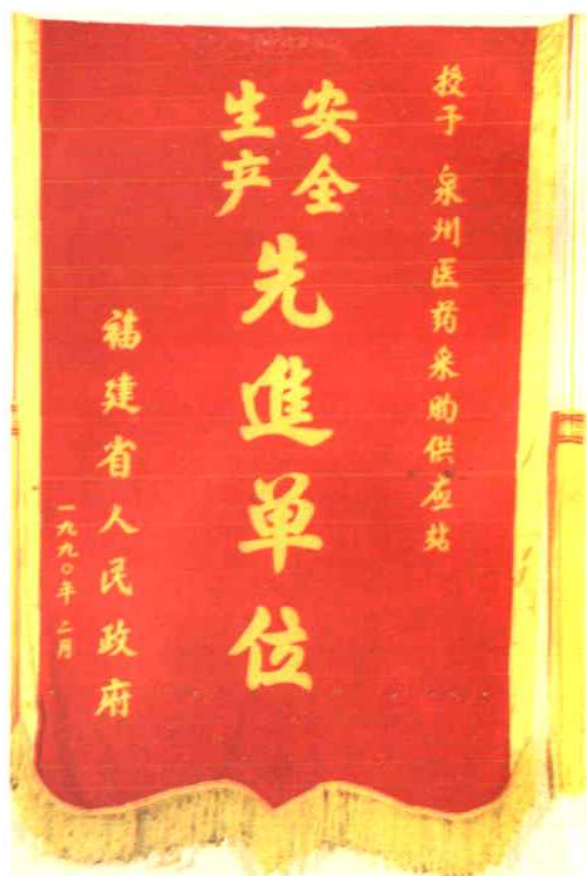 授予 泉州医药采购供应站
安全
生产
先進单位
福建省人民政府
一九九〇年二月